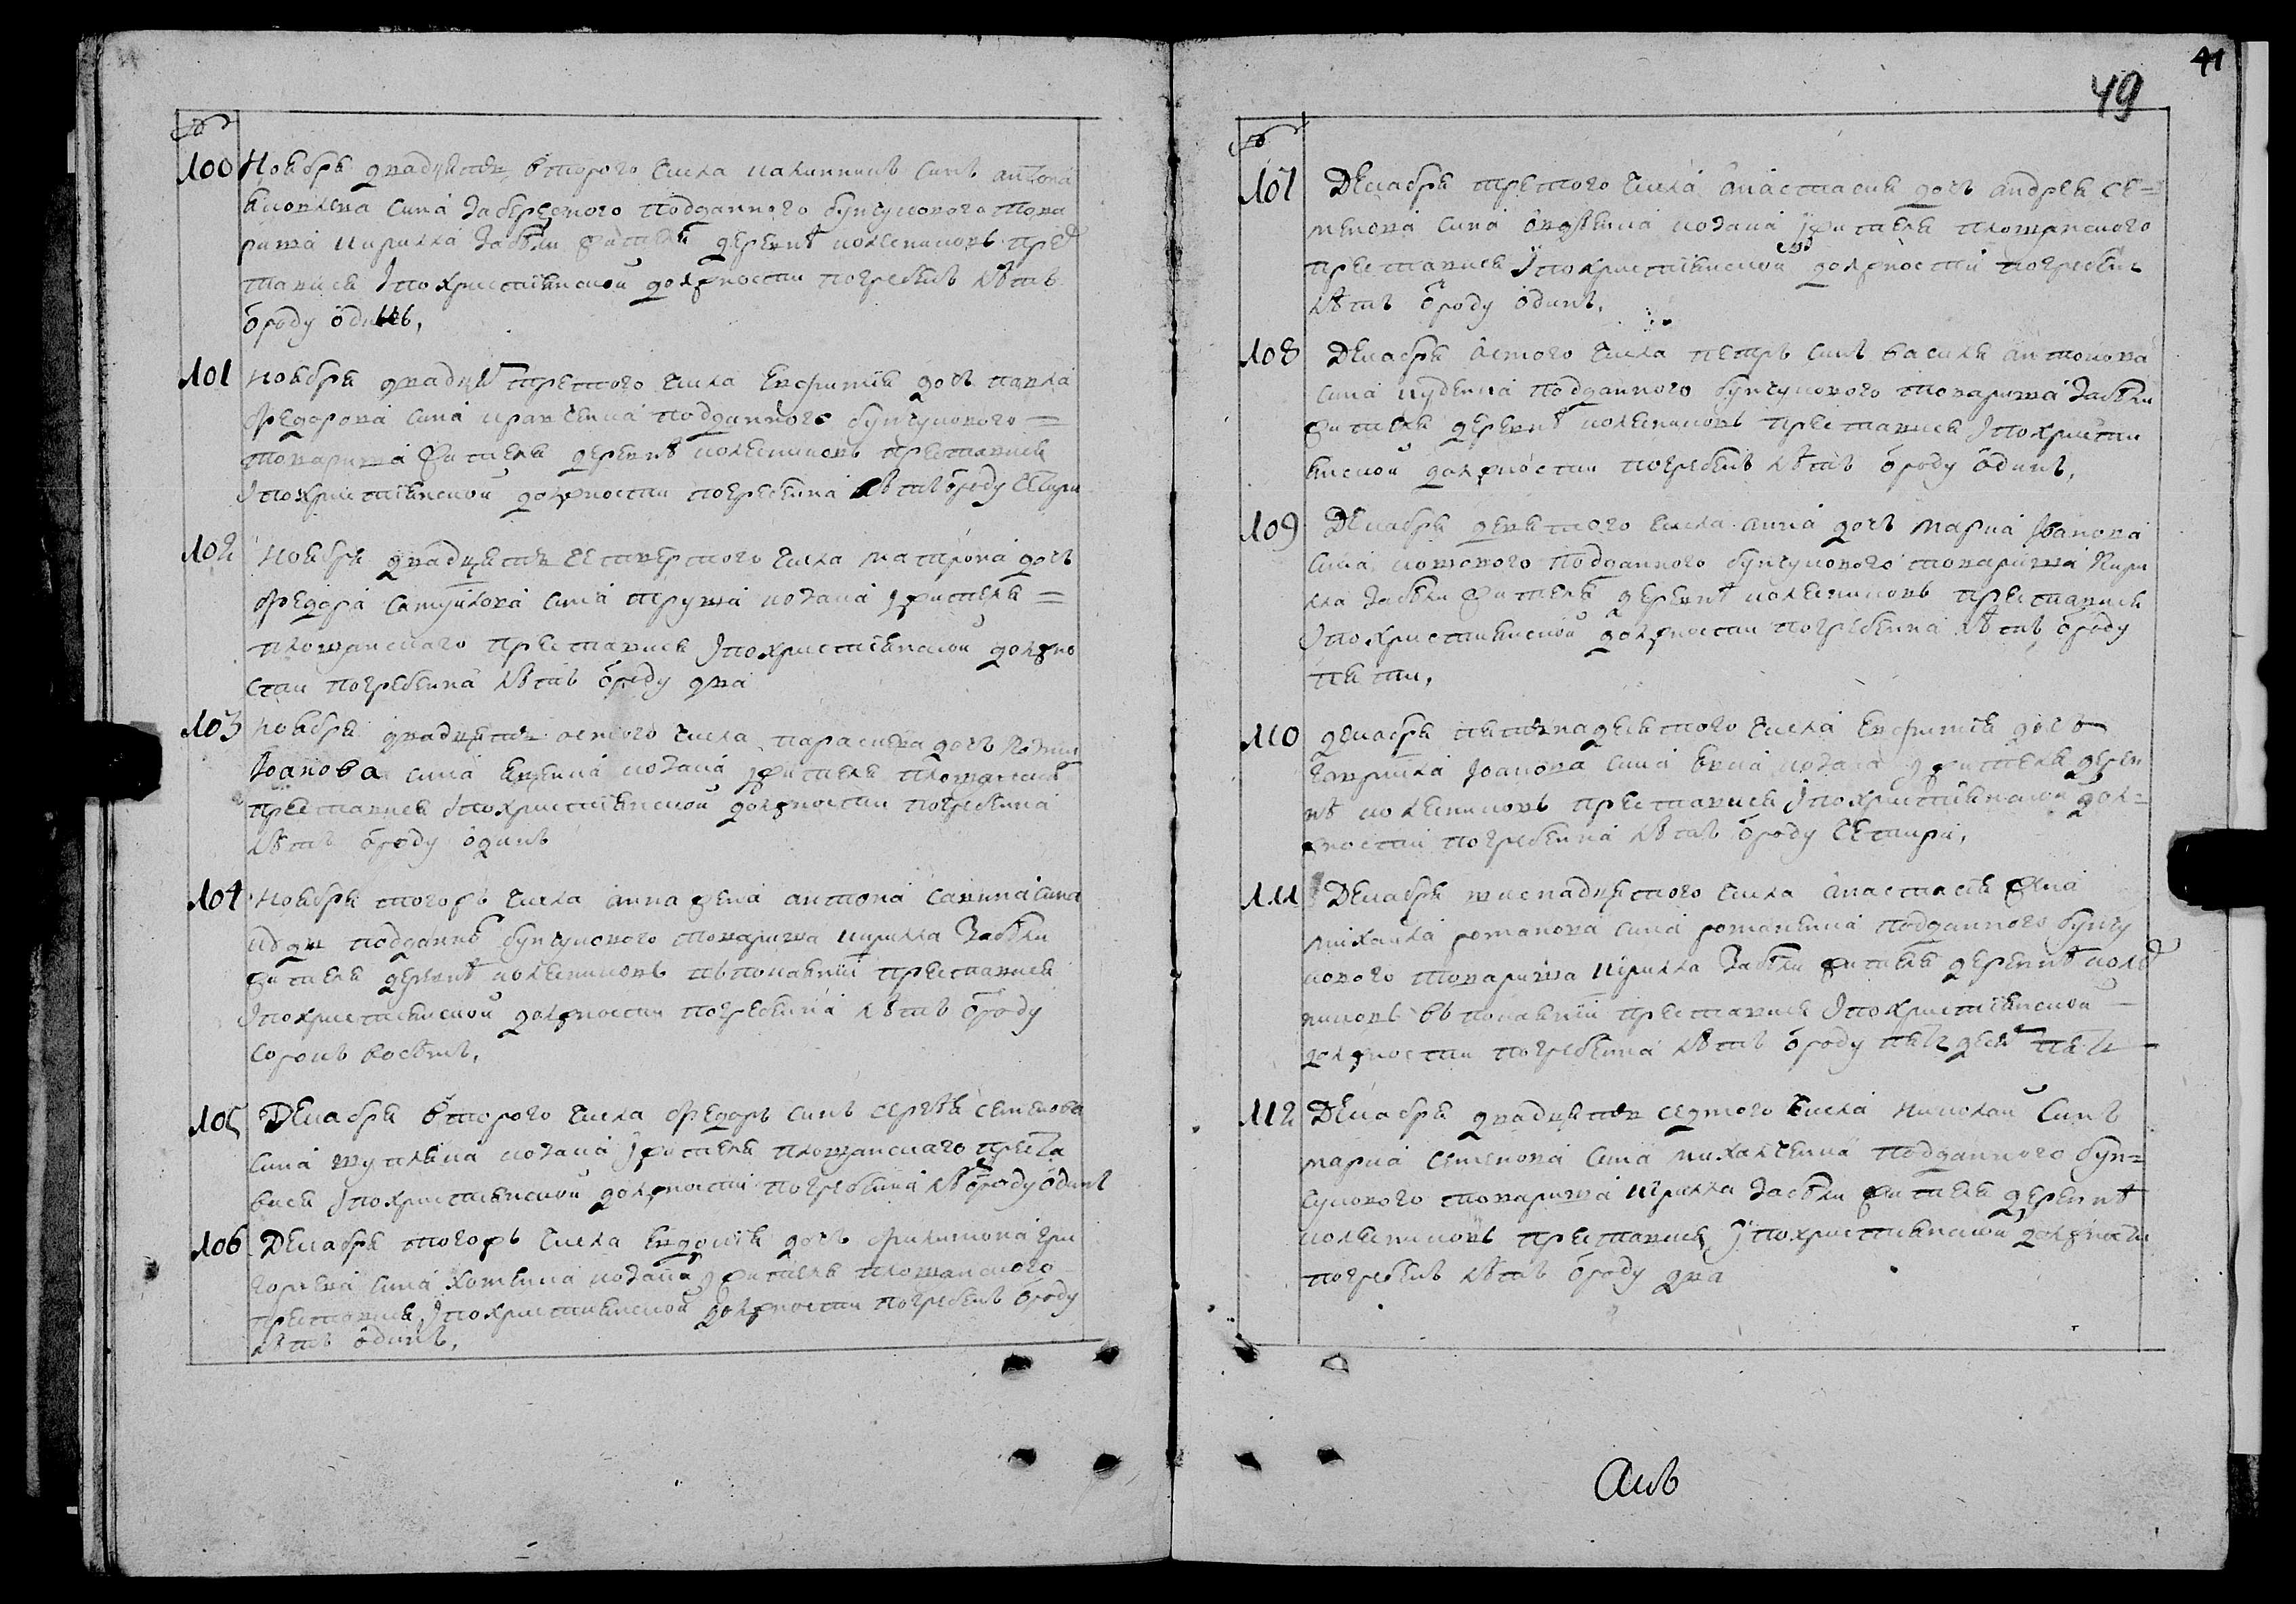 100 Ноября двадцять второго числа калинникъ синъ антона
яковлева сина заберезного подданного бунчукового това
риша кирилла забѣли жителя деревнѣ колесниковъ прес
тавися і по христіянской должности погребенъ лѣтъ
ѿроду одинъ,
101 Ноября двадцять третого числа Евфимія дочь павла
федорова сина кравченка подданного бунчукового =
товариша жителя деревнѣ колесниковъ преставися
і по христіянской должности погребенна лѣтъ ѿроду четири
102 Ноября двадцять четвертого числа матрона дочь
федора самуйлова сина труша козака жителя =
плошанского преставися і по христіянской должно
сти погребенна лѣтъ ѿроду два
103 Ноября двадцять осмого числа параскева дочь
Іоанова сина козака жителя плошанског
преставися і по христіянской должности погребенна
лѣтъ ѿроду одинъ
104 Ноября тогожъ числа анна жена антона савина сина
подданнѣ бунчукового товариша кирилла Забѣли
жителя деревнѣ колесниковъ въ покаяніи преставися
і по християнской должности погребенна лѣтъ ѿроду
сорокъ восѣмъ,
105 Декабря второго числа федоръ синъ сергѣя семенова
сина козака жителя плошанского преста
вися і по християнской должности погребенна лѣтъ ѿроду одинъ
106 Декабря тогожъ числа Евдокія дочь филимона гри
гориева сина хоменка козака жителя плошанского
преставися, і по християнской должности погребенъ ѿроду
лѣтъ одинъ,
49
41
107 Декабря третого числа анастасия дочь андрея се=
менова сина козака жителя плошанского
преставися і по христіянской должности погребенъ
лѣтъ ѿроду одинъ,
108 Декабря осмого числа петръ синъ василя антонова
сина подданного бунчукового товариша Забѣли
жителя деревнѣ колесниковъ преставися і по христи
янской должности погребенъ лѣтъ ѿроду одинъ,
109 Декабря девятого числа анна дочь марка Іванова
сина подданного бунчукового товариша Кири
лла Забѣли жителя деревнѣ колесниковъ преставися
і по християнской должности погребенна лѣтъ ѿроду
пяти,
110 декабря пятьнадцятого числа Евфимія дочь
гавриила Іоанова сина козака жителя дерев
нѣ колесниковъ преставися і по христіянской дол=
жности погребенна лѣтъ ѿроду четири,
111 Декабря шиснадцятого числа анастасія жена
михайла романова сина романенка подданного бунчу
кового товариша кирилла Забѣли жителя деревнѣ колес
никовъ въ покаяніи преставися і по христіянской
должности погребенна лѣтъ ѿроду пятьдесят пять
112 Декабря двадцять седмого числа николай синъ
марка семенова сина михалченка подданного бун=
чукового товариша кирилла забѣли жителя деревнѣ
колесниковъ преставися і по християнской должности
погребенъ лѣтъ ѿроду два